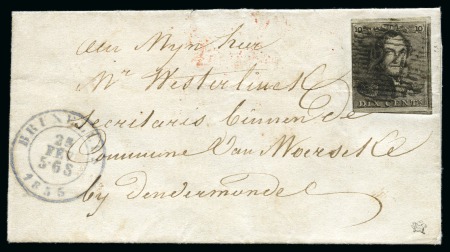 aan Mijn heer
Mr Westerlinck
Secritaris binnen de
Commune Van Moerseke
by dendermonde
10 10
DIX CENTS
BRUXELLES
25
FEV
5-6S
1855